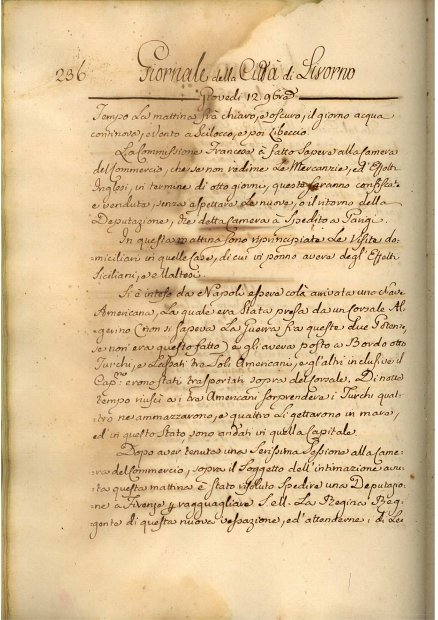 236 Giornale della Città di Livorno
Giovedi 12. 9bre
Tempo La mattina frà chiaro, e oscuro, il giorno acqua
continova, e vento a Scilocco, e poi Libeccio
La Commissione Francese à fatto sapere alla Camera
del Commercio, che se non redime Le Mercanzie, ed' Effetti
Inglesi, in termine di otto giorni, queste saranno confiscate
e vendute, senza aspettare Le nuove, o il ritorno della
Deputazione, che detta Camera à Spedito a Parigi.
In questa mattina sono riprincipiate Le Visite do-
miciliari in quelle Case, di cui vi ponno avere degl' Effetti
Siciliani, e Maltesi.
Si è inteso da Napoli essere colà arrivata una Nave
Americana, La quale era Stata presa da un Corsale Al-
gerino (non si sapeva La Guerra frà queste due Poten-
se non era questo fatto) e gli aveva posto a Bordo otto
Turchi, e Lasciati tre Soli Americani, e gl'altri inclusive il
Cap:no erono Stati trasportati sopra del Corsale. Di notte
tempo riuscì a i tre Americani sorprendere i Turchi quat-
tro ne ammazzarono, e quattro si gettarono in mare,
ed' in questo Stato sono andati in quella Capitale.
Dopo aver tenuta una Serissima Sessione alla Came-
ra del Commercio, sopra il Soggetto dell' intimazione avu-
ta questa mattina è stato risoluto Spedire una Deputazio-
ne a Firenze p ragguagliare S. M. La Regina Reg-
gente di questa nuova vessazione, ed' attenderne i di Lei